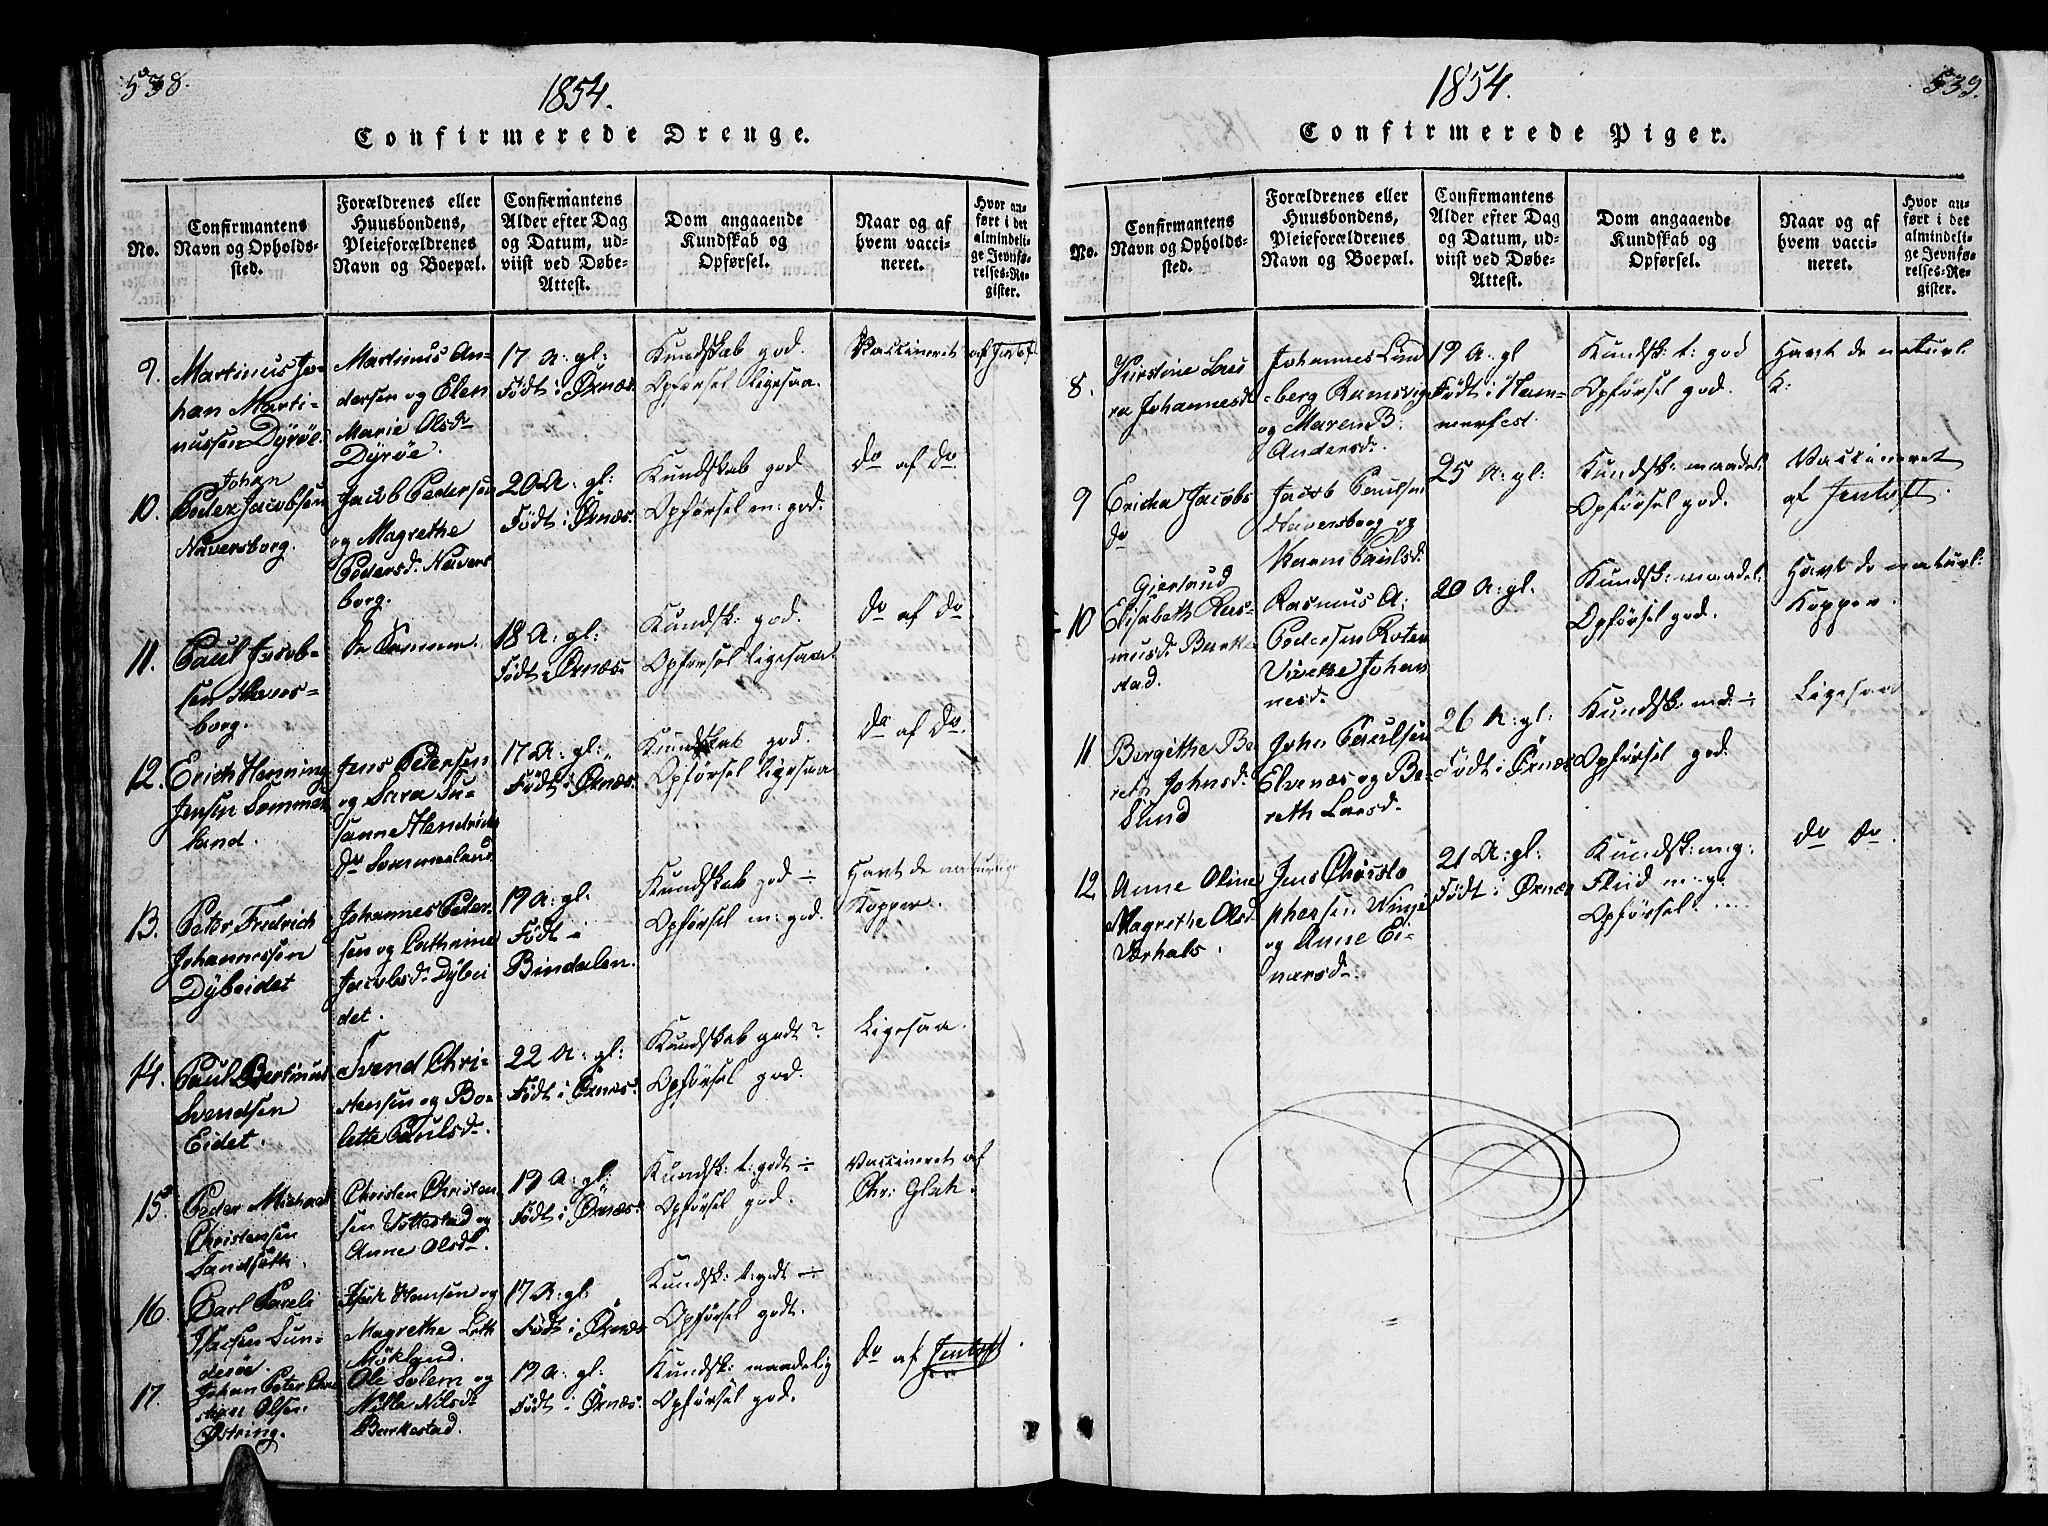 538.
1854.
Confirmerede Drenge.
No.
Confirmantens
Navn og Opholds-
sted.
Forældrenes eller
Huusbondens,
Pleieforældrenes
Navn og Boepæl.
Confirmantens
Alder efter Dag
og Datum, ud-
viist ved Døbe-
Attest.
Dom angaaende
Kundskab og
Opførsel.
Naar og af
hvem vacci-
neret.
Hvor an-
ført i det
almindeli-
ge Jevnfø-
relses-Re-
gister.
9.
Martinus Jo-
han Marti-
nussen Dÿrøe.
Martinus An-
dersen og Elen
Marie Olsdr
Dÿrøe.
17 A: gl:
Født i Ørnæs
Kundskab god.
Opførsel ligesaa.
Vaccineret af Jentoft
10.
Johan
Peder Jacobsen
Haversborg.
Jacob Pedersen
og Magrethe
Pedersd. Havers
borg.
20 A: gl:
Født i Ørnæs.
Kundskab god
Opførsel m: god.
Do af Do
11.
Paul Jacob-
sen Havers-
borg.
De Samme.
18 A: gl:
Født i Ørnæs
Kundsk: god.
Opførsel ligesaa
Do af Do
12.
Erich Henning
Jensen Sommer
land.
Jens Petersen
og Sara Su-
sanne Hendrichs
dr Sommerland
17 A: gl:
Født i Ørnæs.
Kundskab god.
Opførsel ligesaa
Do af Do.
13.
Peter Fredrich
Johannessen
Dÿbeidet
Johannes Peder-
sen og Cathrine
Jacobsd: Dÿbei
det.
19 A: gl:
Født i
Bindalen.
Kundskab god ÷
Opførsel m: god.
Havt de naturlig
Kopper.
14.
Paul Bertinus
Svendsen
Eidet.
Svend Chri-
stensen og Bo-
lette Paulsdr.
22 A: gl:
Født i Ørnæs.
Kundskab godt?
Opførsel god.
Ligesaa.
15.
Peder Michael
Christensen
Sandsøth.
Christen Christen
sen Tottestad og
Anne Olsdr.
19 A: gl:
Født i Ørnæs.
Kundsk: t: godt ÷
Opførsel god.
Vaccineret af
Chr: Glah.
16.
Carl Pareli
Isacsen Sun-
derøe.
Isak Hansen og
Magrethe
Mökland.
17 A: gl:
Født i Ørnæs
Kundsk: t: godt ÷
Opførsel godt.
17.
Johan Peter Chri
stian Olsen
Østring.
Ole Solem og
Nille Nilsdr
Barkestad.
19 A: gl:
Født i Ørnæs.
Kundsk: maadelig
Opførsel god.
Do af Jentoft
1854.
539.
Confirmerede Piger.
No.
Confirmantens
Navn og Opholds-
sted.
Forældrenes eller
Huusbondens,
Pleieforældrenes
Navn og Boepæl.
Confirmantens
Alder efter Dag
og Datum, ud-
viist ved Døbe-
Attest.
Dom angaaende
Kundskab og
Opførsel.
Naar og af
hvem vacci-
neret.
Hvor an-
ført i det
almindeli-
ge Jevnfø-
relses-Re-
gister.
8.
Kirstine Lau
ra Johannesdr
Johannes Lund
berg Ramsvig
og Maren B:
Andersdr.
19 A: gl
Født i Ham-
merfest.
Kundsk: t: god
Opførsel god.
Havt de naturl:
K:
9
Ericka Jacobs
dr
Jacob Paulsen
Haversborg og
Karen Paulsd.
25 A: gl:
Kundsk: maadel:
Opførsel god.
Vaccineret
af Jentoft.
10
Gjertrud
Elisabeth Ras-
musd. Barke
stad.
Rasmus A:
Pedersen
Vivikke Johan
nesd.
20 A: gl.
Kundsk: maadel:
Opførsel god.
Havt de naturl:
Kopper.
11
Bergithe Be-
ret Johnsd.
Sund
John Paulsen
Elvenæs og Be-
reth Larsd.
26 A: gl:
Født i Ørnæs
Kundsk: md: ÷
Opførsel god.
Ligesaa
12
Anne Oline
Magrethe Olsd.
Værhals.
Jens Christo
phersen Winje
og Anne Ei-
narsdr.
21 A: gl:
Født i Ørnæs
Kundsk: mg:
Fliid m: g:
Opførsel: ....
Do Do.